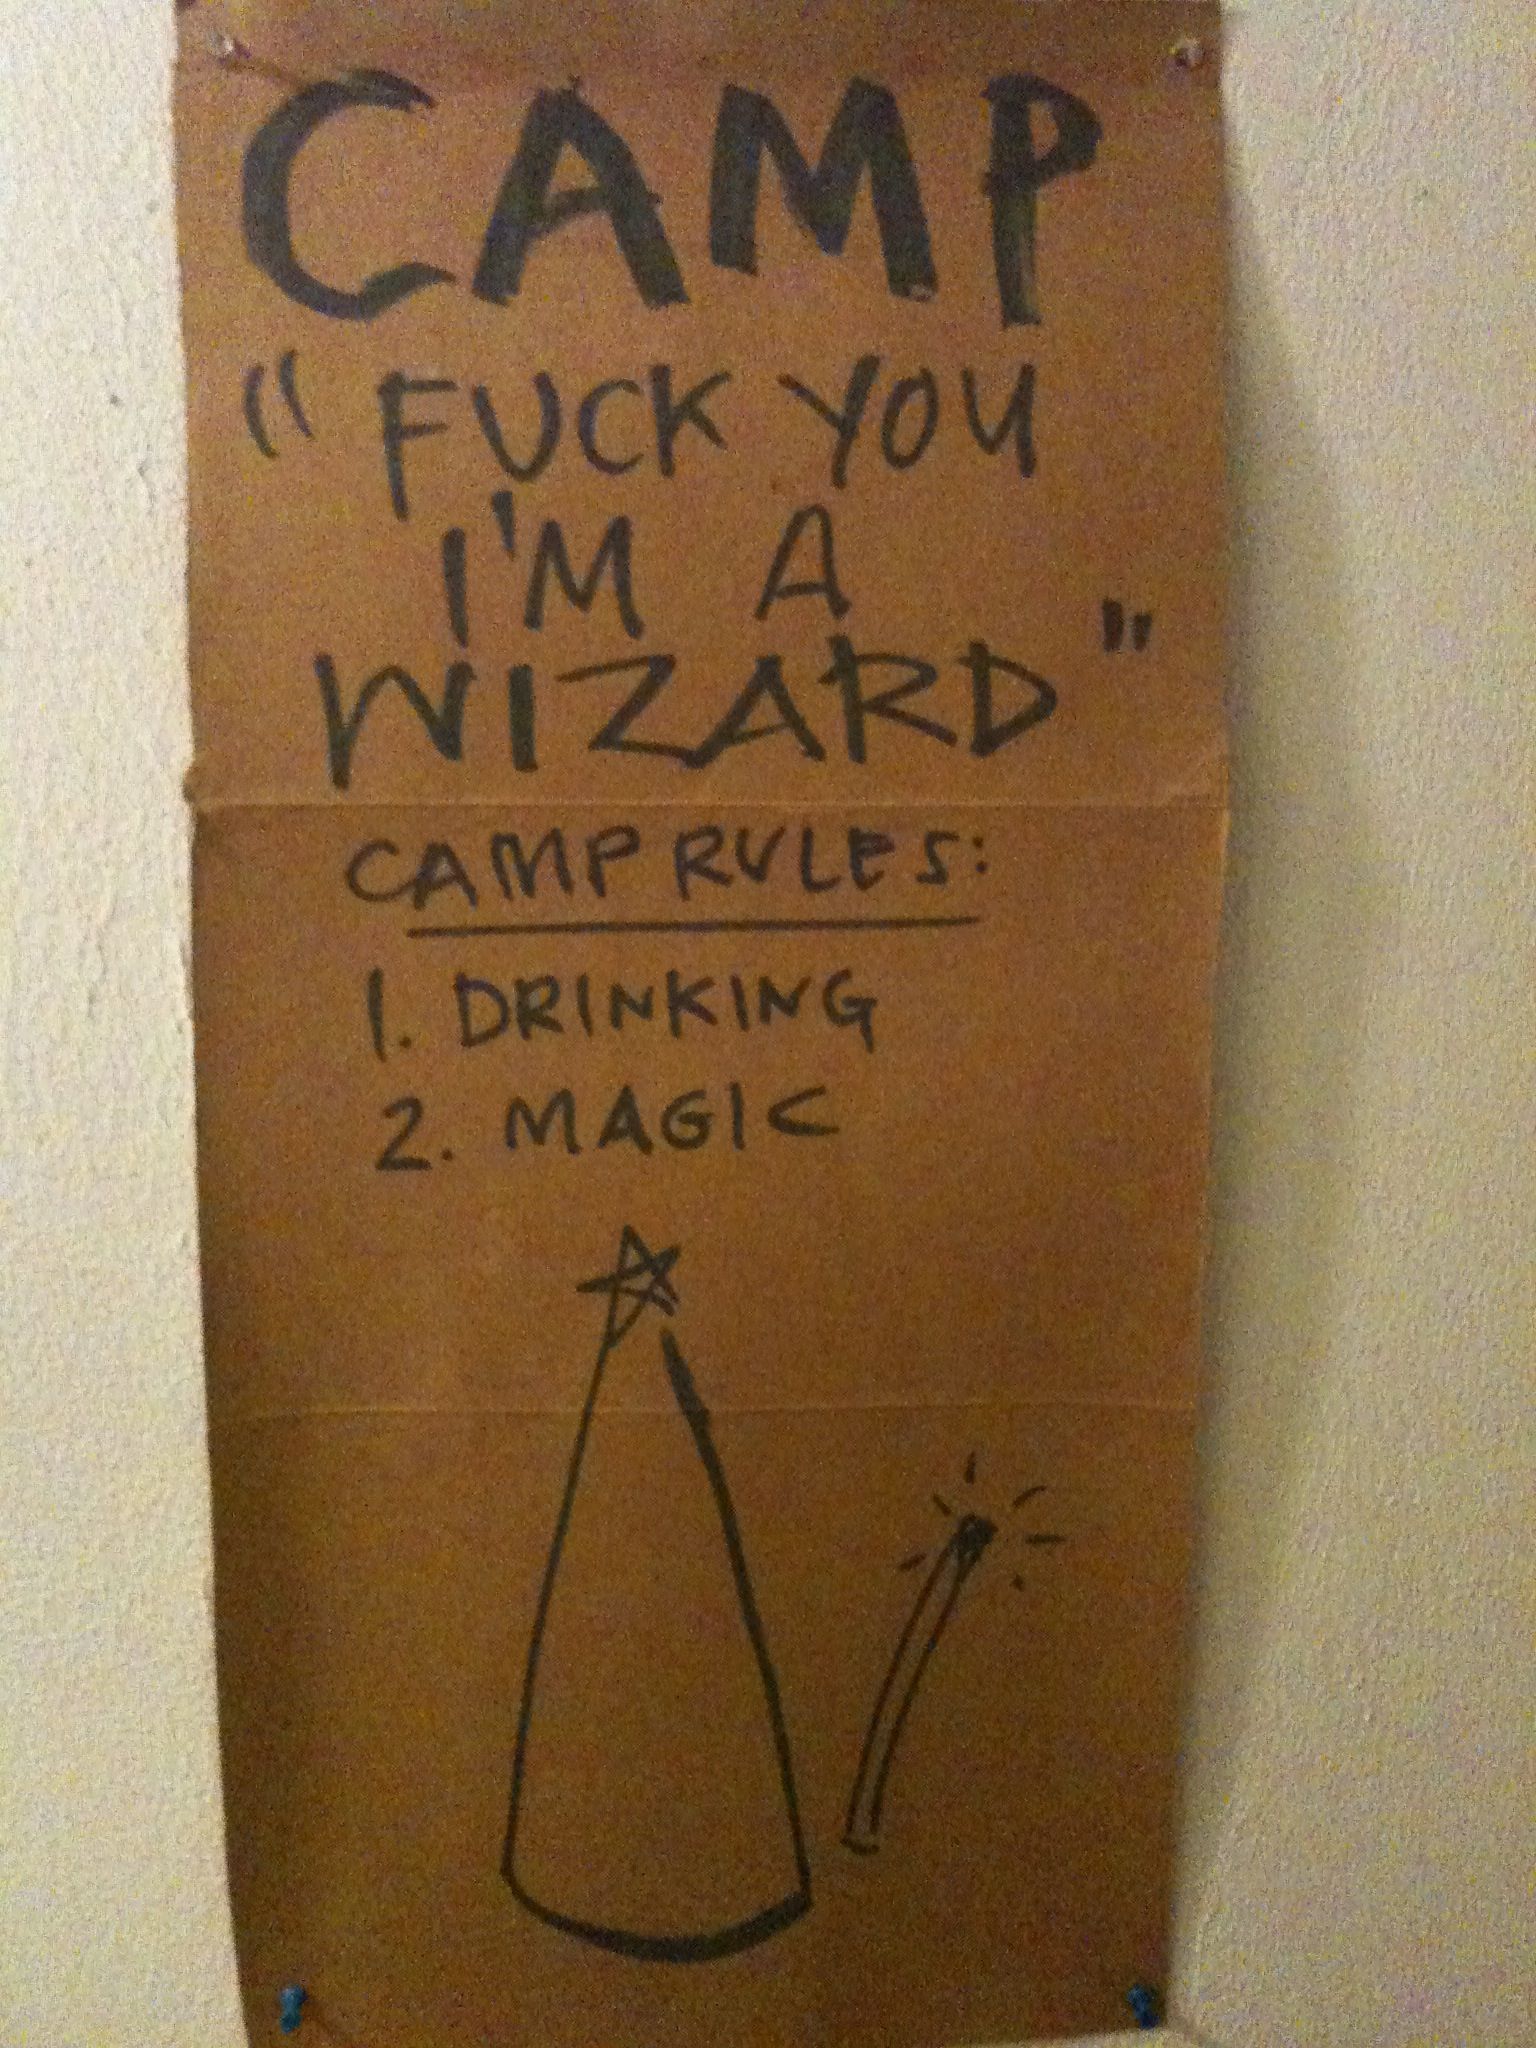 CAMP
"FUCK YOU
I'M A
WIZARD"
CAMP RULES:
1. DRINKING
2. MAGIC